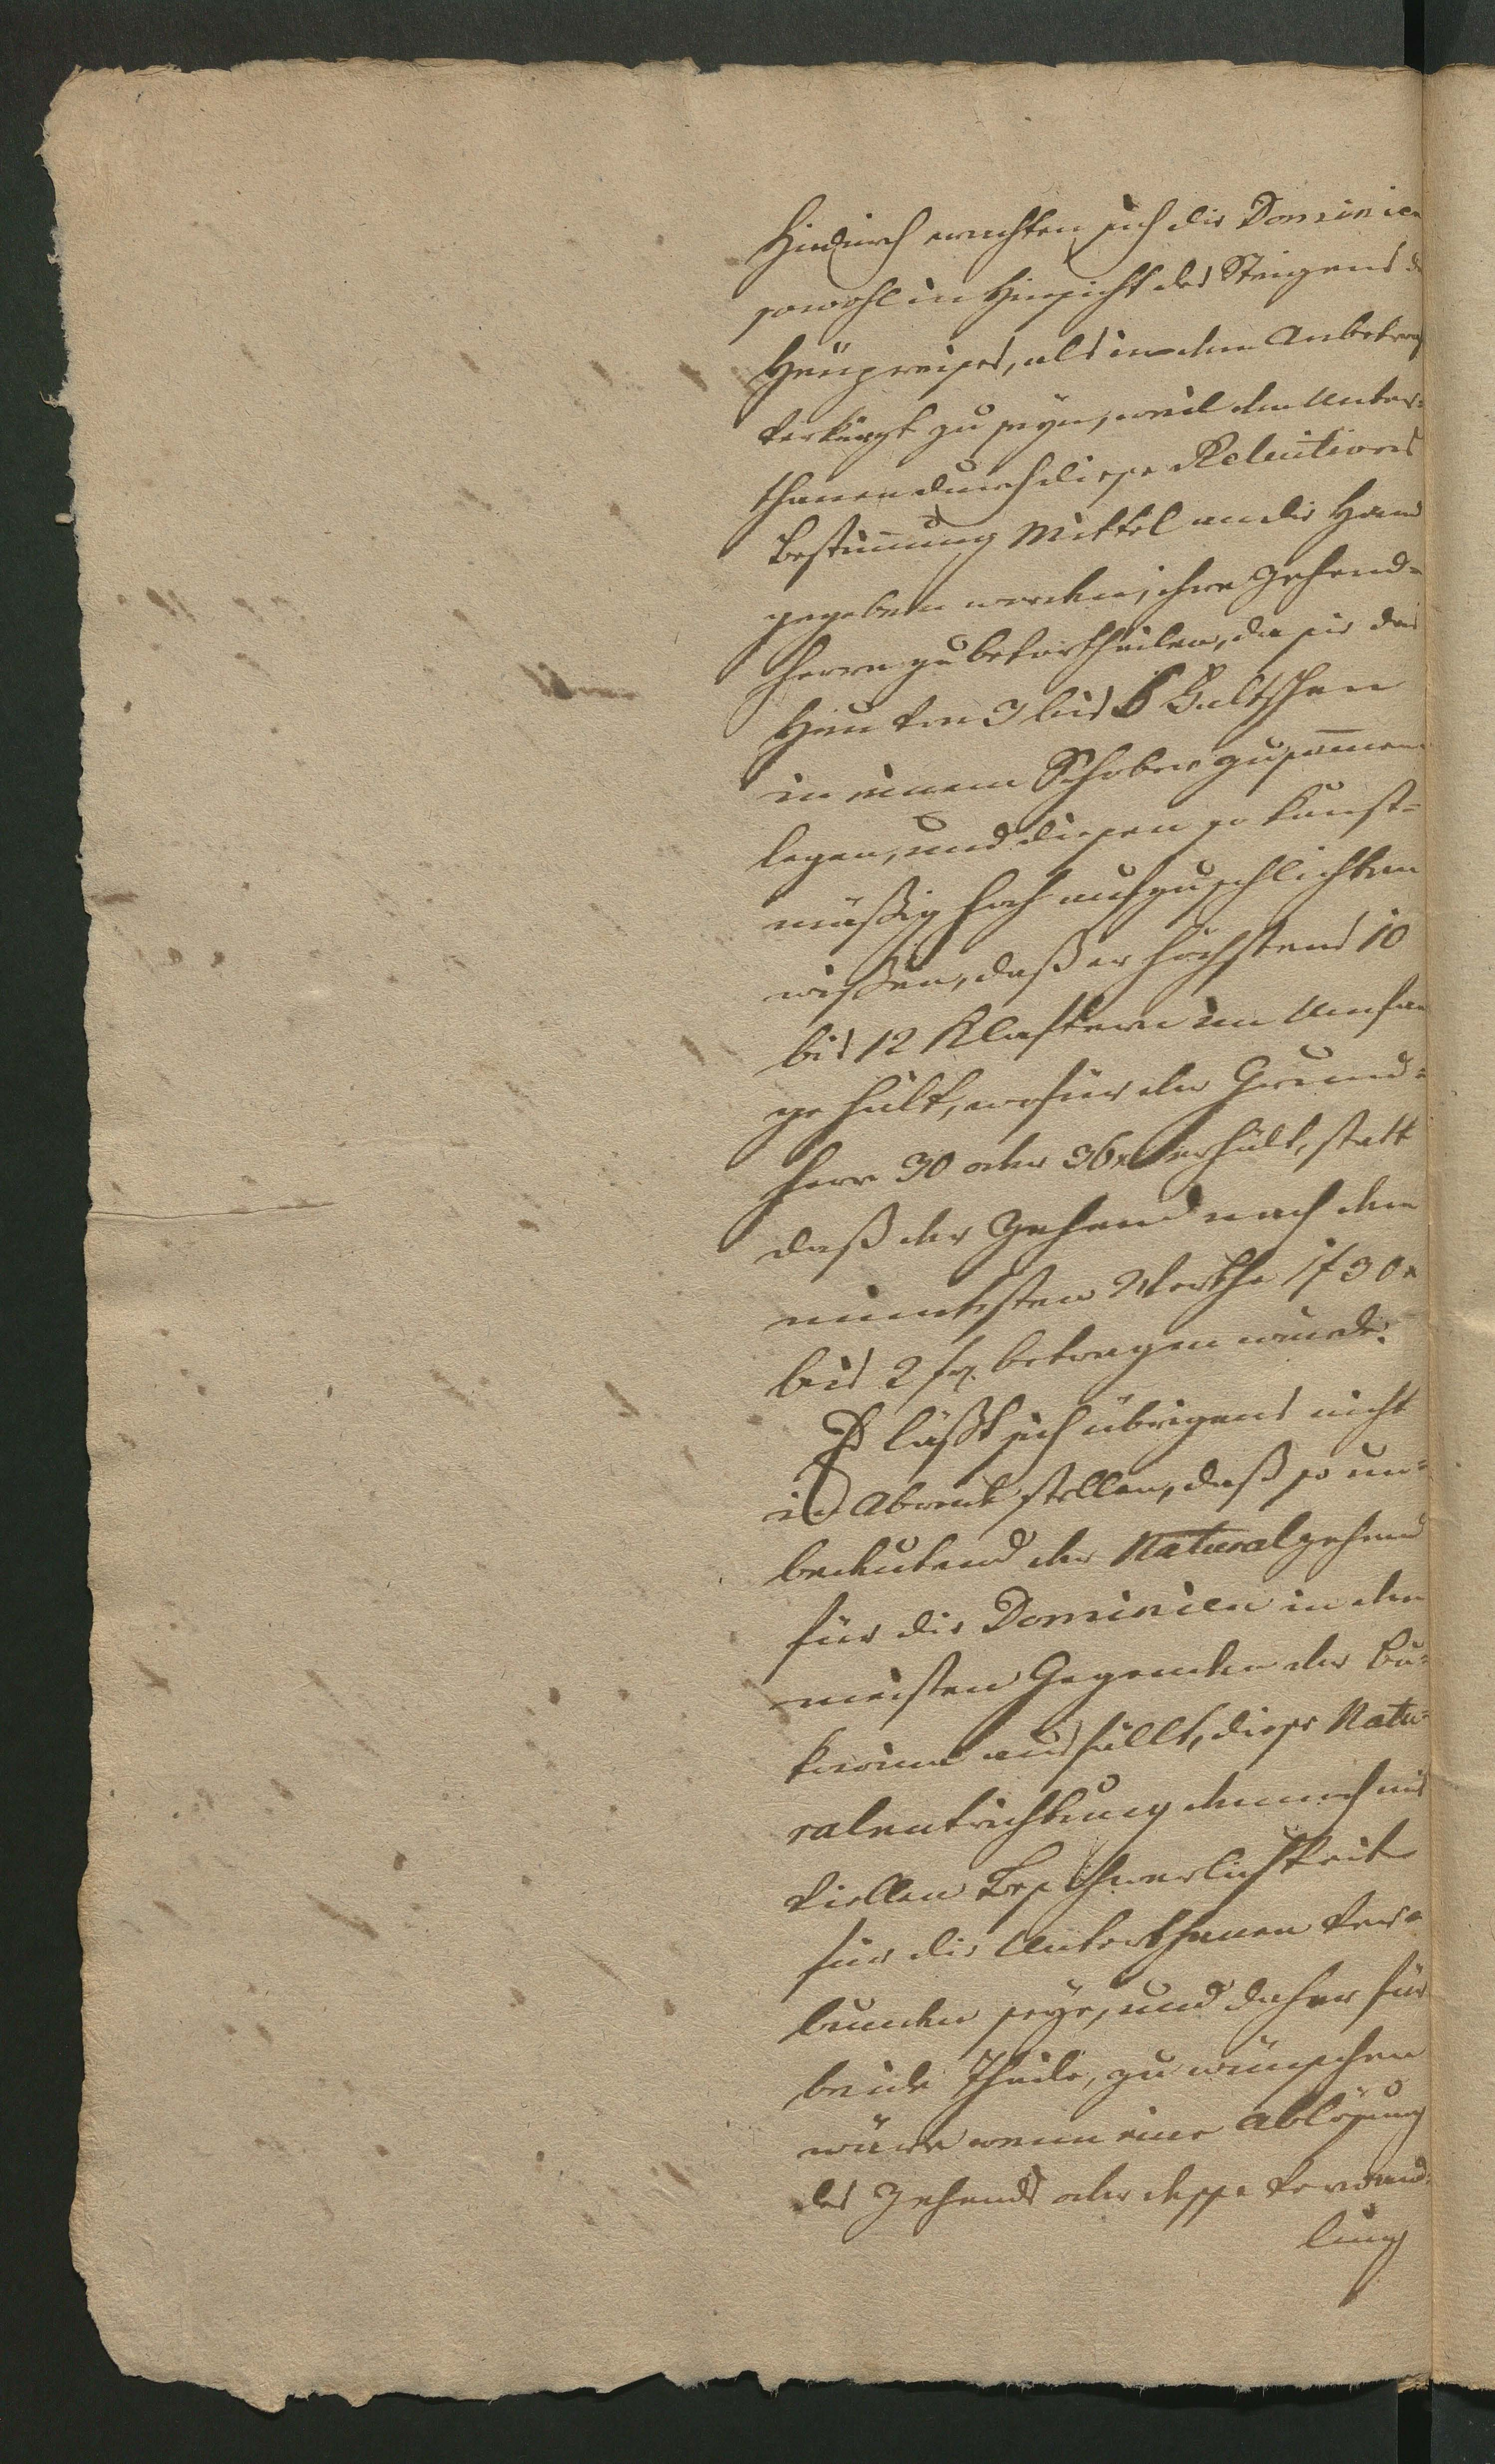 Hiedurch erachten sich die Dominien
sowohl in Hinsicht des Steigens d
Heupreises, als in dem Anbetrag
verkürzt zu seyn, weil den Unter-
thanen durch diese Reluitions
Bestimmung Mittel an die Hand
gegeben werden, ihre Zehend-
herrn zu bevortheilen, da sie das
Heu von 3 bis 6 Faltschen
in einem Schober zusammen
legen, und diesen so kunst-
mäßig hoch aufzuschlichten
wissen, daß er höchstens 10
bis 12 Klaftern im Umfan
ge hält, wofür der Grund-
herr 30 oder 36x erhält, statt
daß der Zehend nach dem
mindesten Werthe 1f 30x
bis 2 f. betragen würde.
Es läßt sich übrigens nicht
in Abrede stellen, daß so un-
bedeutend der Naturalzehend
für die Dominien in den
meisten Gegenden der Bu-
kowina ausfällt, diese Natu-
ralentrichtung dennoch mit
viellen Beschwerlichkeit
für die Unterthanen ver-
bunden seye, und daher für
beide Theile, zu wünschen
wäre wenn eine Ablösung
des Zehends oder desse Verwand-
lung